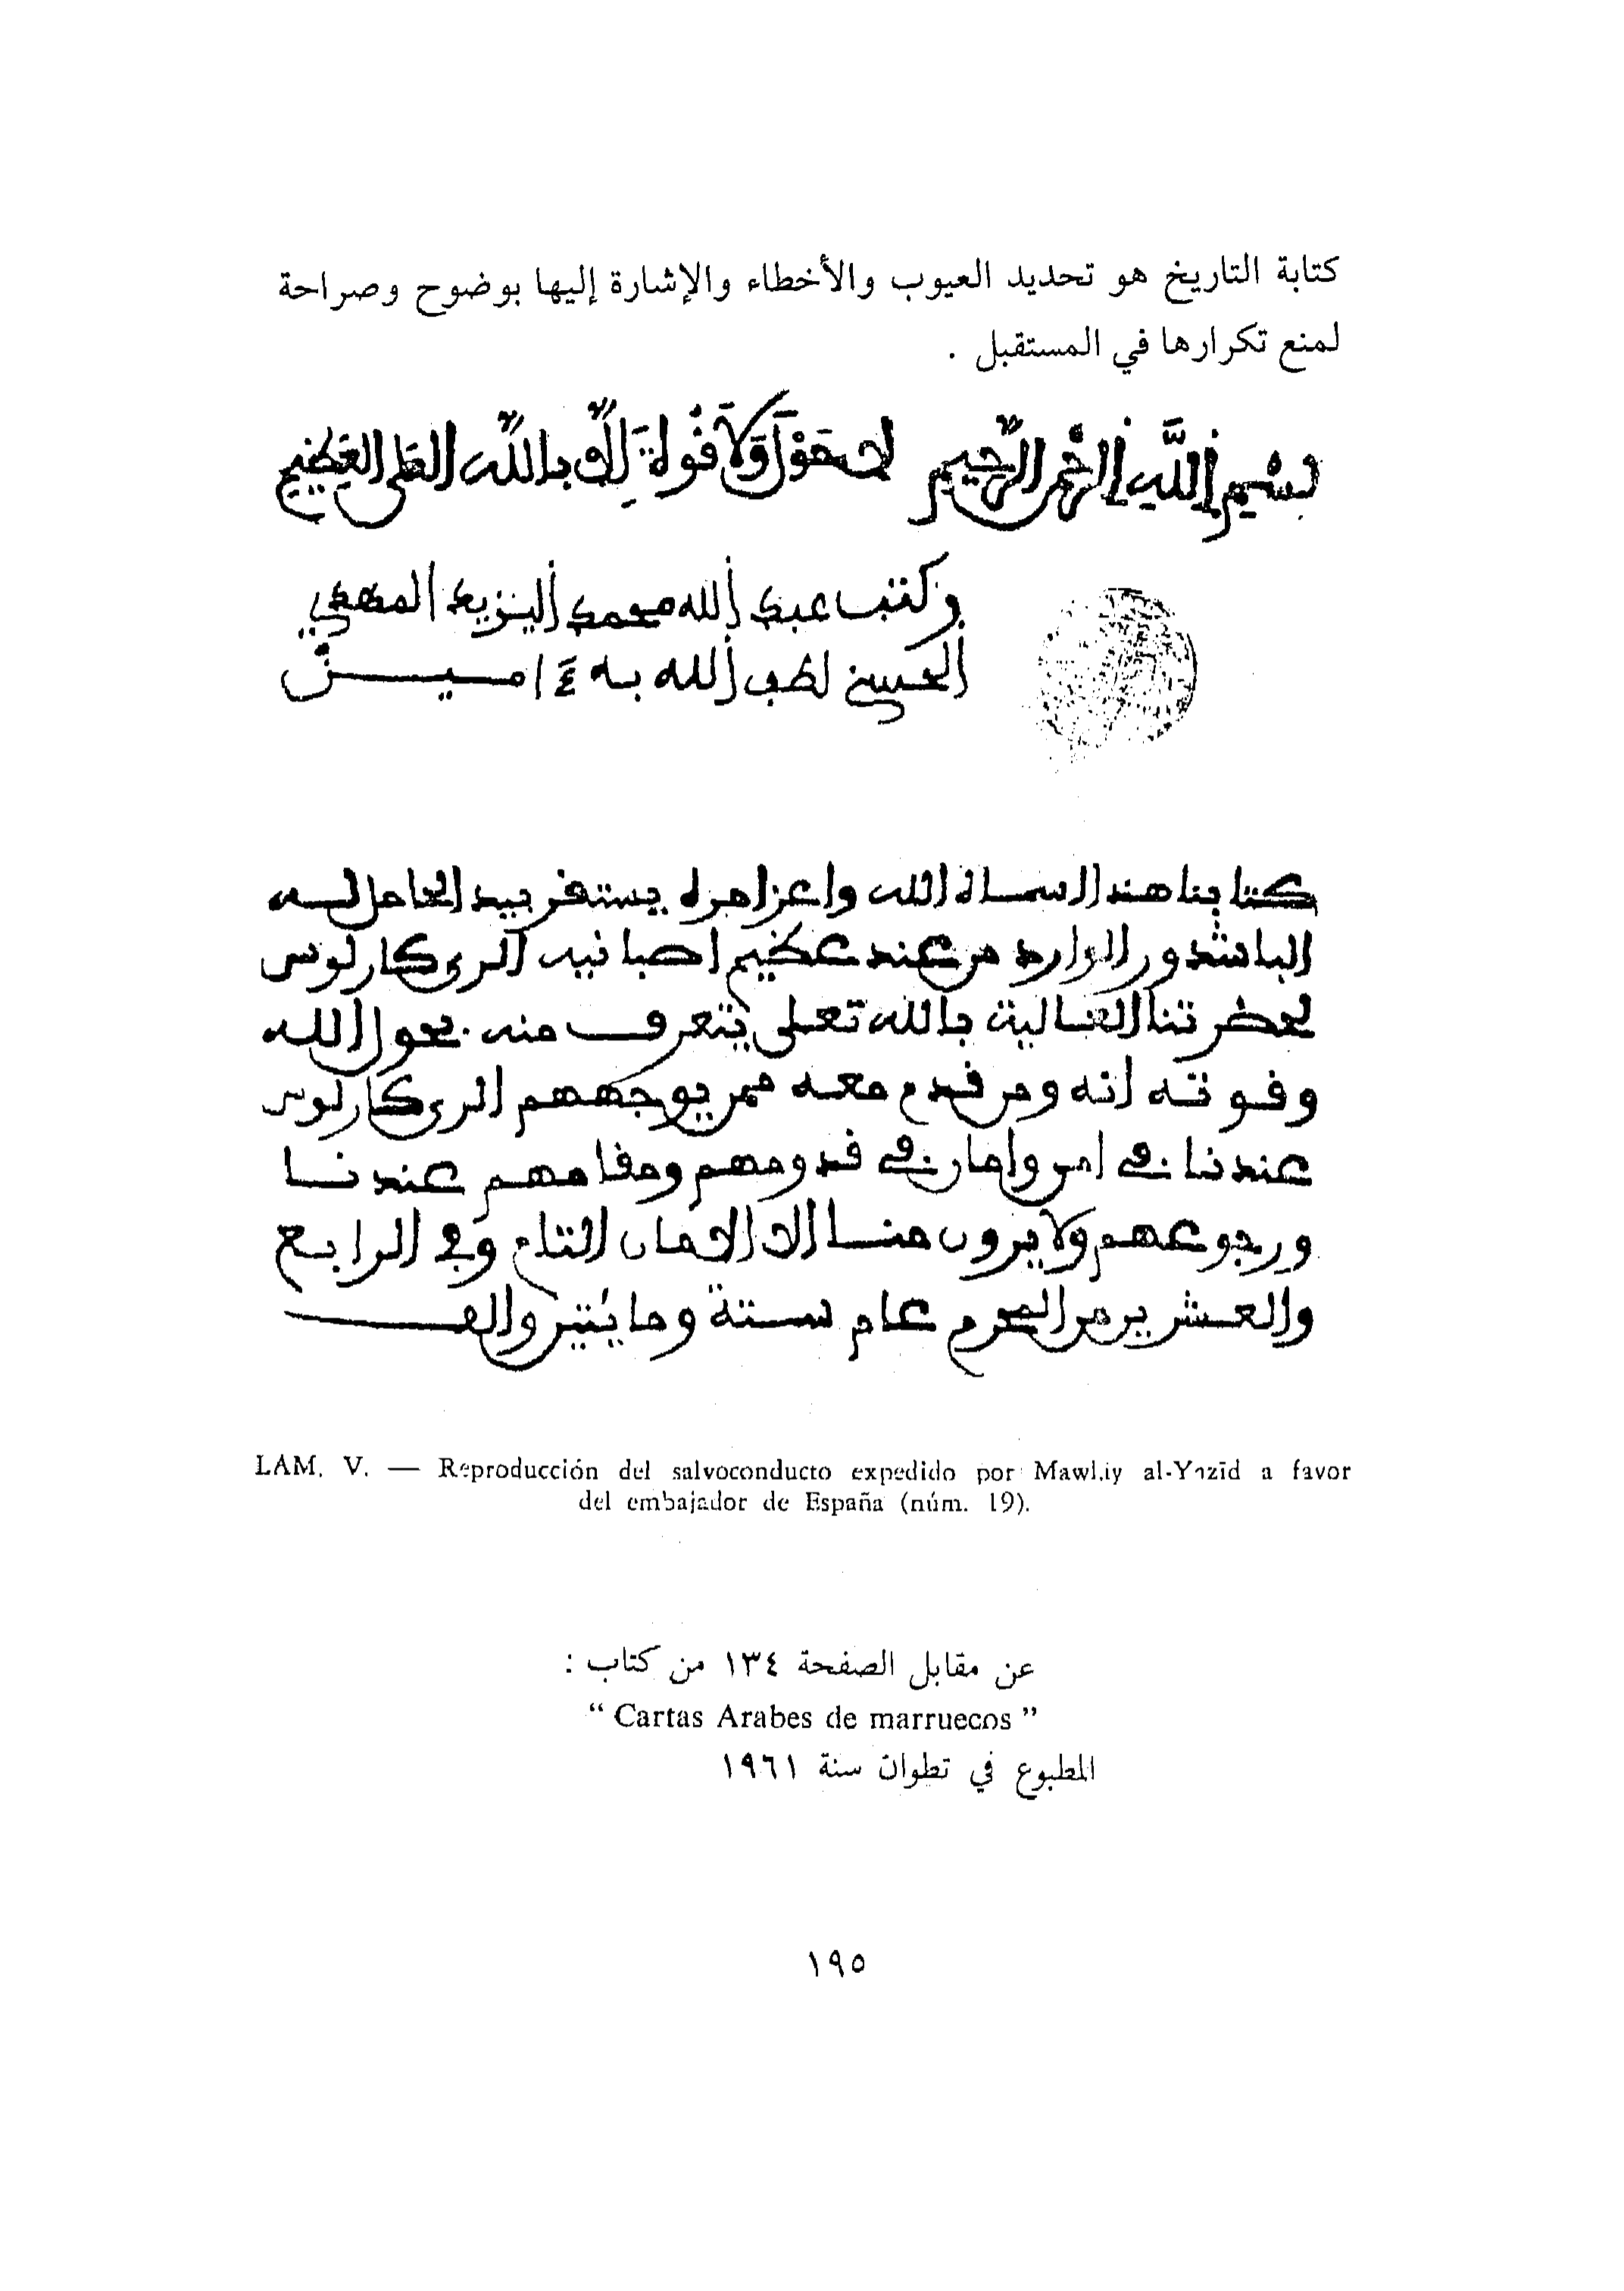 كتابة التاريخ هو تحديد العيوب والأخطاء والإشارة إليها بوضوح وصراحة
لمنع تكرارها في المستقبل .
بِسْمِ اللَّهِ الرَّحْمٰنِ الرَّحِيمِ لا حَوْلَ وَلَا قُوةَ إِلَّا بِاللَّهِ العَلِى العَظِيمِ
وكتب عبد الله محمد اليزيد المهدي
الحسني لطف الله به ءامين
كتابنا هذا اسماه الله واعز امره يستقر بيد الحامل له
الباشدور الوارد من عند عظيم اصبانيه الرى كارلوس
لحضرتنا العالية بالله تعلى يتعرف منه بحول الله
وقوته انه ومن قدم معه ممن يوجههم الرى كارلوس
عندنا في امن وامان في قدومهم ومقامهم عندنا
ورجوعهم ولا يرون منا الا الامان التام وفي الرابع
والعشرين من المحرم عام ستة ومايتين والف
LAM. V. — Reproducción del salvoconducto expedido por Mawlāy al-Yazīd a favor
del embajador de España (núm. 19).
عن مقابل الصفحة ١٣٤ من كتاب :
“ Cartas Arabes de marruecos ”
المطبوع في تطوان سنة ١٩٦١
١٩٥